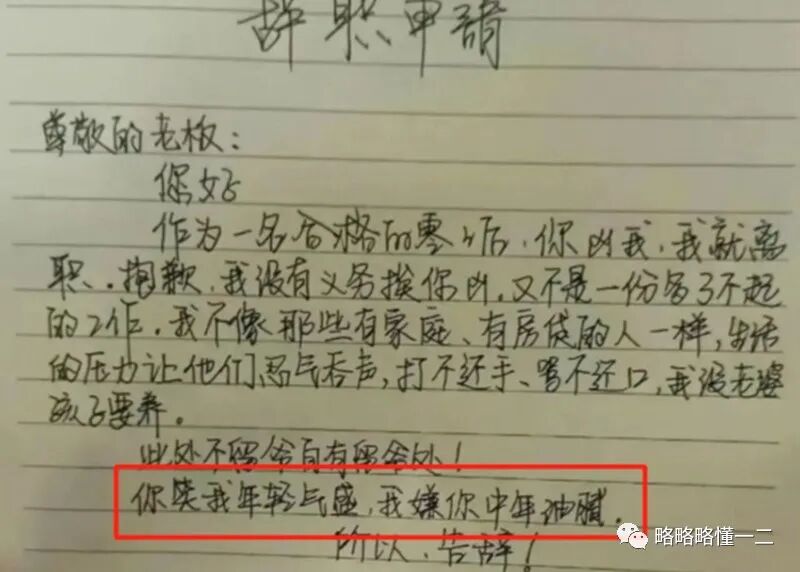 辞职申请
尊敬的老板：
您好
作为一名合格的零0后，你凶我，我就离
职。抱歉，我没有义务挨你凶，又不是一份多了不起
的工作。我不像那些有家庭、有房贷的人一样，生活
的压力让他们忍气吞声，打不还手、骂不还口，我没老婆
孩子要养。
此处不留爷自有留爷处！
你笑我年轻气盛，我嫌你中年油腻。
所以，告辞！
略略略懂一二